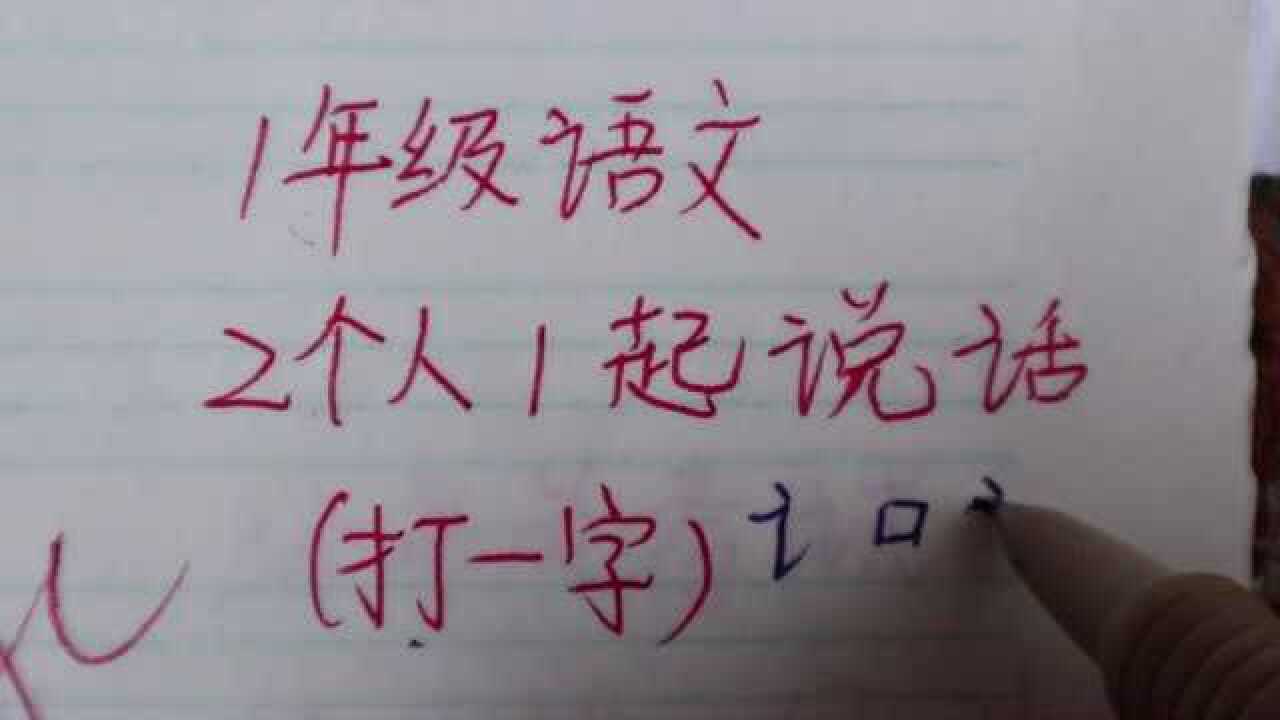 1年级语文
2个人1起说话
(打一字) 讠口